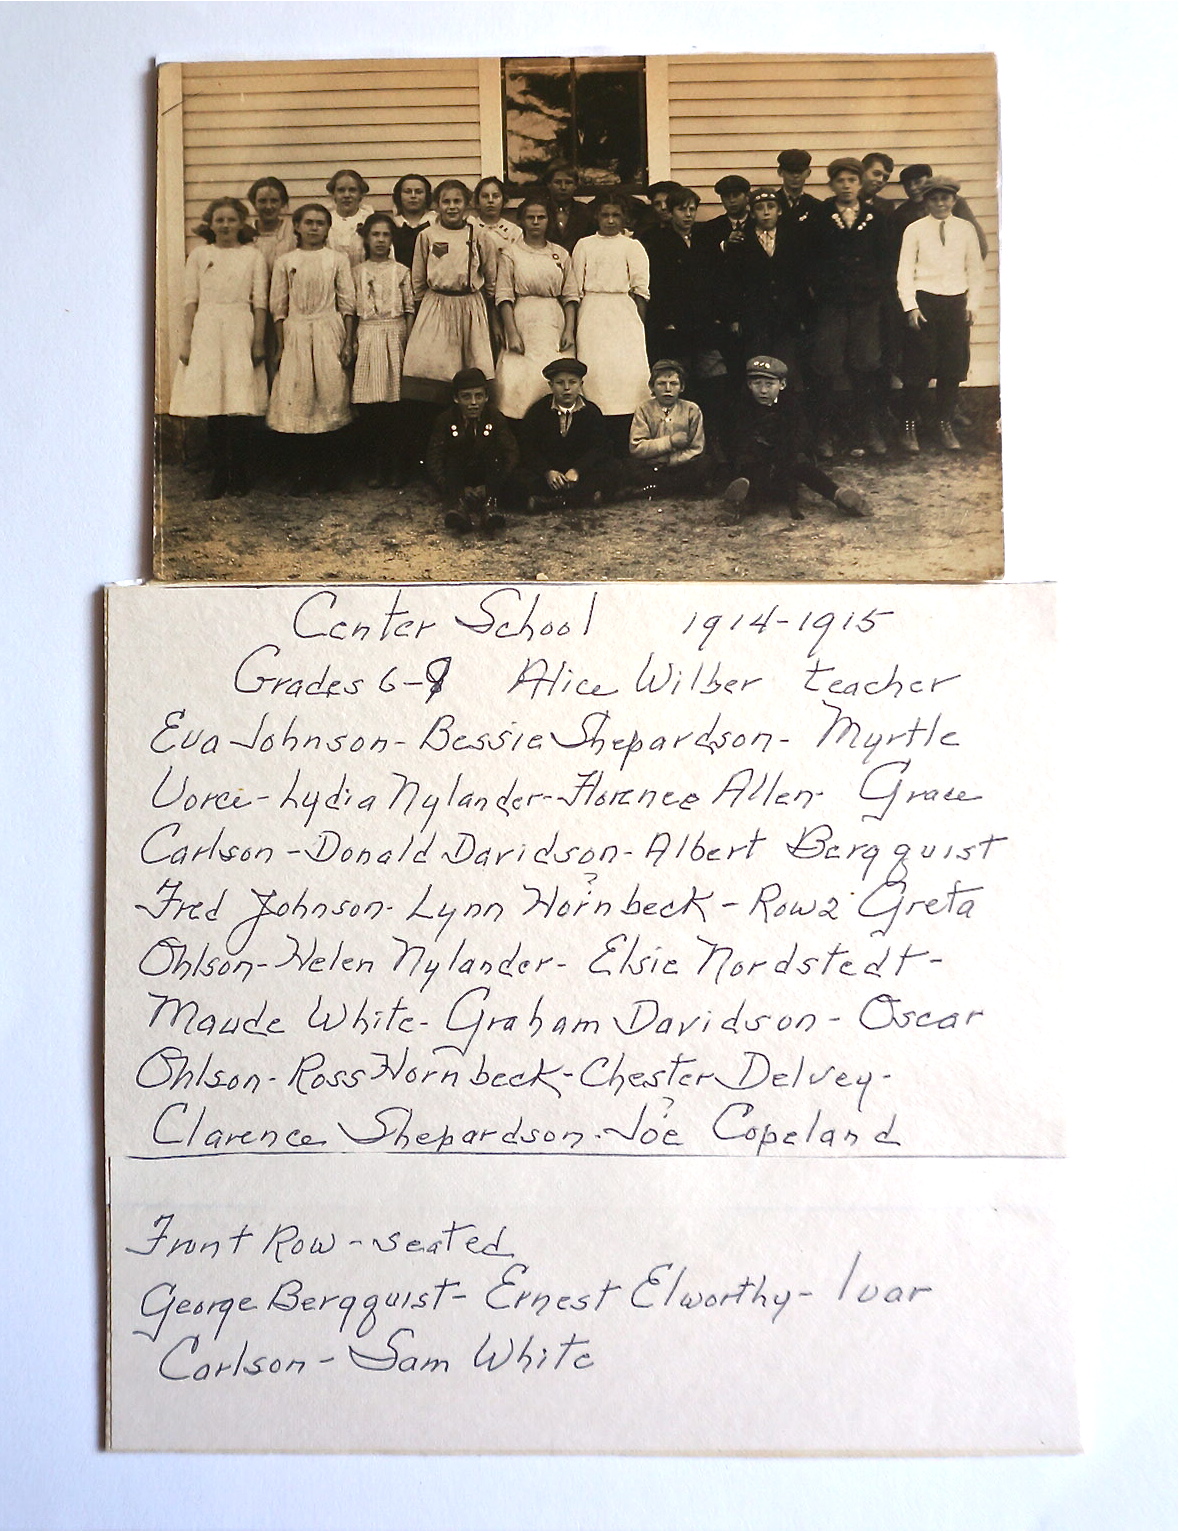 Center School 1914-1915
Grades 6-8 Alice Wilber teacher
Eva Johnson - Bessie Shepardson - Myrtle
Vorce - Lydia Nylander - Florence Allen - Grace
Carlson - Donald Davidson - Albert Bergquist
?
Fred Johnson - Lynn Hornbeck - Row 2 Greta
Ohlson - Helen Nylander - Elsie Nordstedt -
Maude White - Graham Davidson - Oscar
Ohlson - Ross Hornbeck - Chester Delvey -
?
Clarence Shepardson - Joe Copeland
Front Row - seated
George Bergquist - Ernest Elworthy - Ivar
Carlson - Sam White